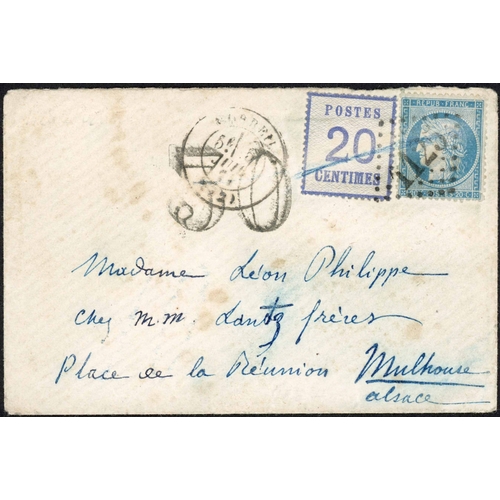 POSTES
20
CENTIMES
REPUB. FRANC.
Madame Léon Philippe
chez M.M. Lantz frères
Place de la Réunion Mulhouse
alsace